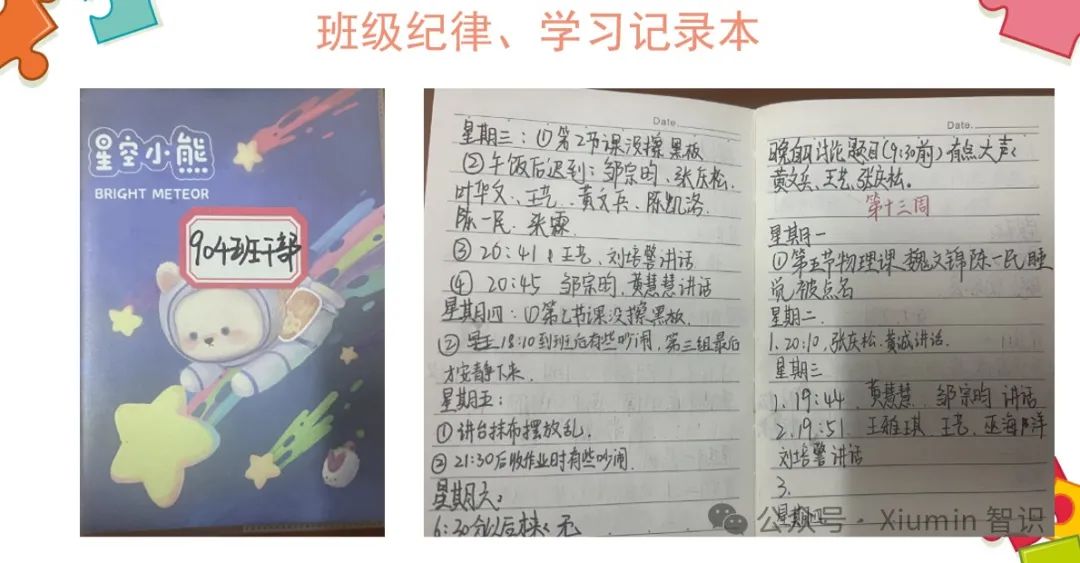 班级纪律、学习记录本
星空小熊
BRIGHT METEOR
904班干部
Date.
星期三：①第2节课没擦黑板
②午饭后迟到：邹宗昀、张庆松、
叶华文、王艺、黄文兵、陈凯洛、
陈一民、梁霖
③20:41：王艺、刘培警讲话
④ 20:45 邹宗昀、黄慧慧讲话
星期四：①第2节课没擦黑板.
② 18:10到班后有些吵闹，第三组最后
才安静下来.
星期五：
①讲台抹布摆放乱.
②21:30后收作业时有些吵闹.
星期六：
6:30分以后来：无
Date.
晚自习讨论题目(9:30前)有点大声：
黄文兵、王艺、张庆松.
第十三周
星期一
①第五节物理课 魏文锦 陈一民 睡
觉被点名
星期二.
1. 20:10, 张庆松 黄诚讲话.
星期三
1. 19:44 黄慧慧 邹宗昀 讲话
2. 19:51. 王雅琪 王艺、巫海洋
刘培警讲话
3.
星期四
公众号·Xiumin 智识